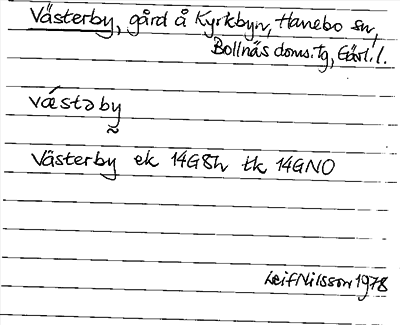 Västerby, gård å Kyrkbyn, Hanebo sn,
Bollnäs doms.tg, Gävl. l.
vǽstəby
Västerby ek 14G8h tk 14GNO
Leif Nilsson 1978